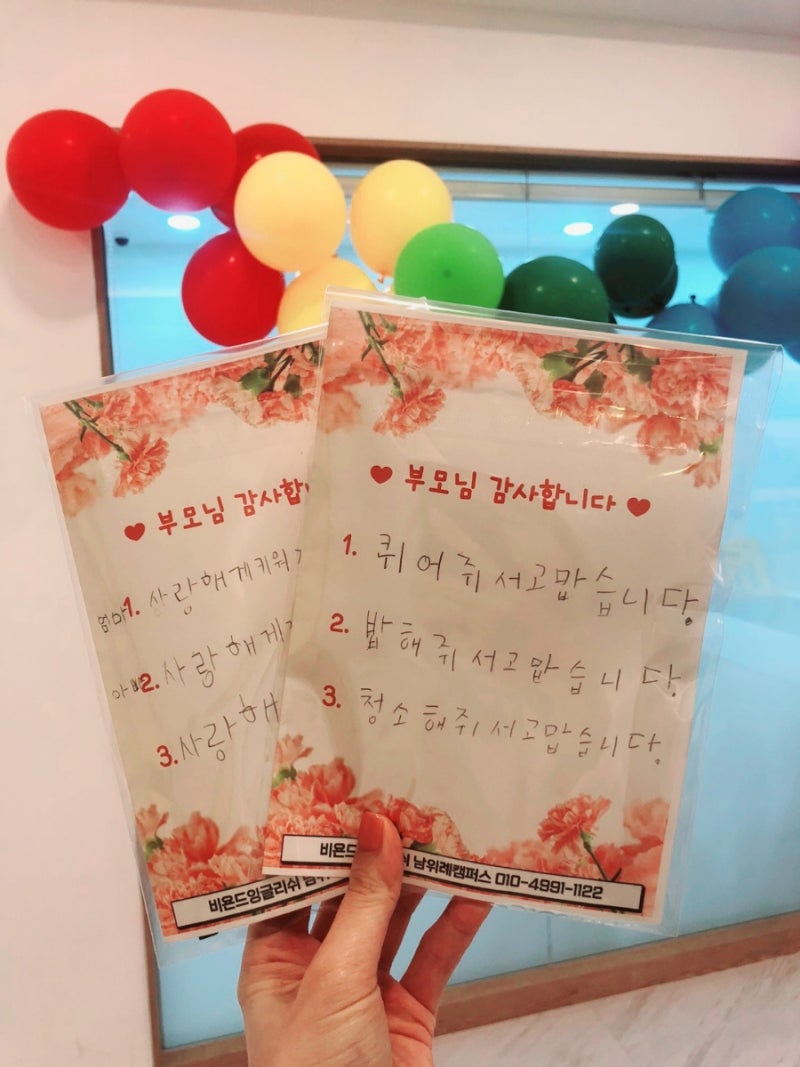 부모님 감사합
엄마 1. 사랑해게키워
아빠 2. 사랑해게
3. 사랑해
비욘드잉글리쉬
부모님 감사합니다
1. 퀴어쥐서고맙습니다.
2. 밥해줘서고맙습니다.
3. 청소해줘서고맙습니다.
비욘드 쉬 남위례캠퍼스 010-4991-1122